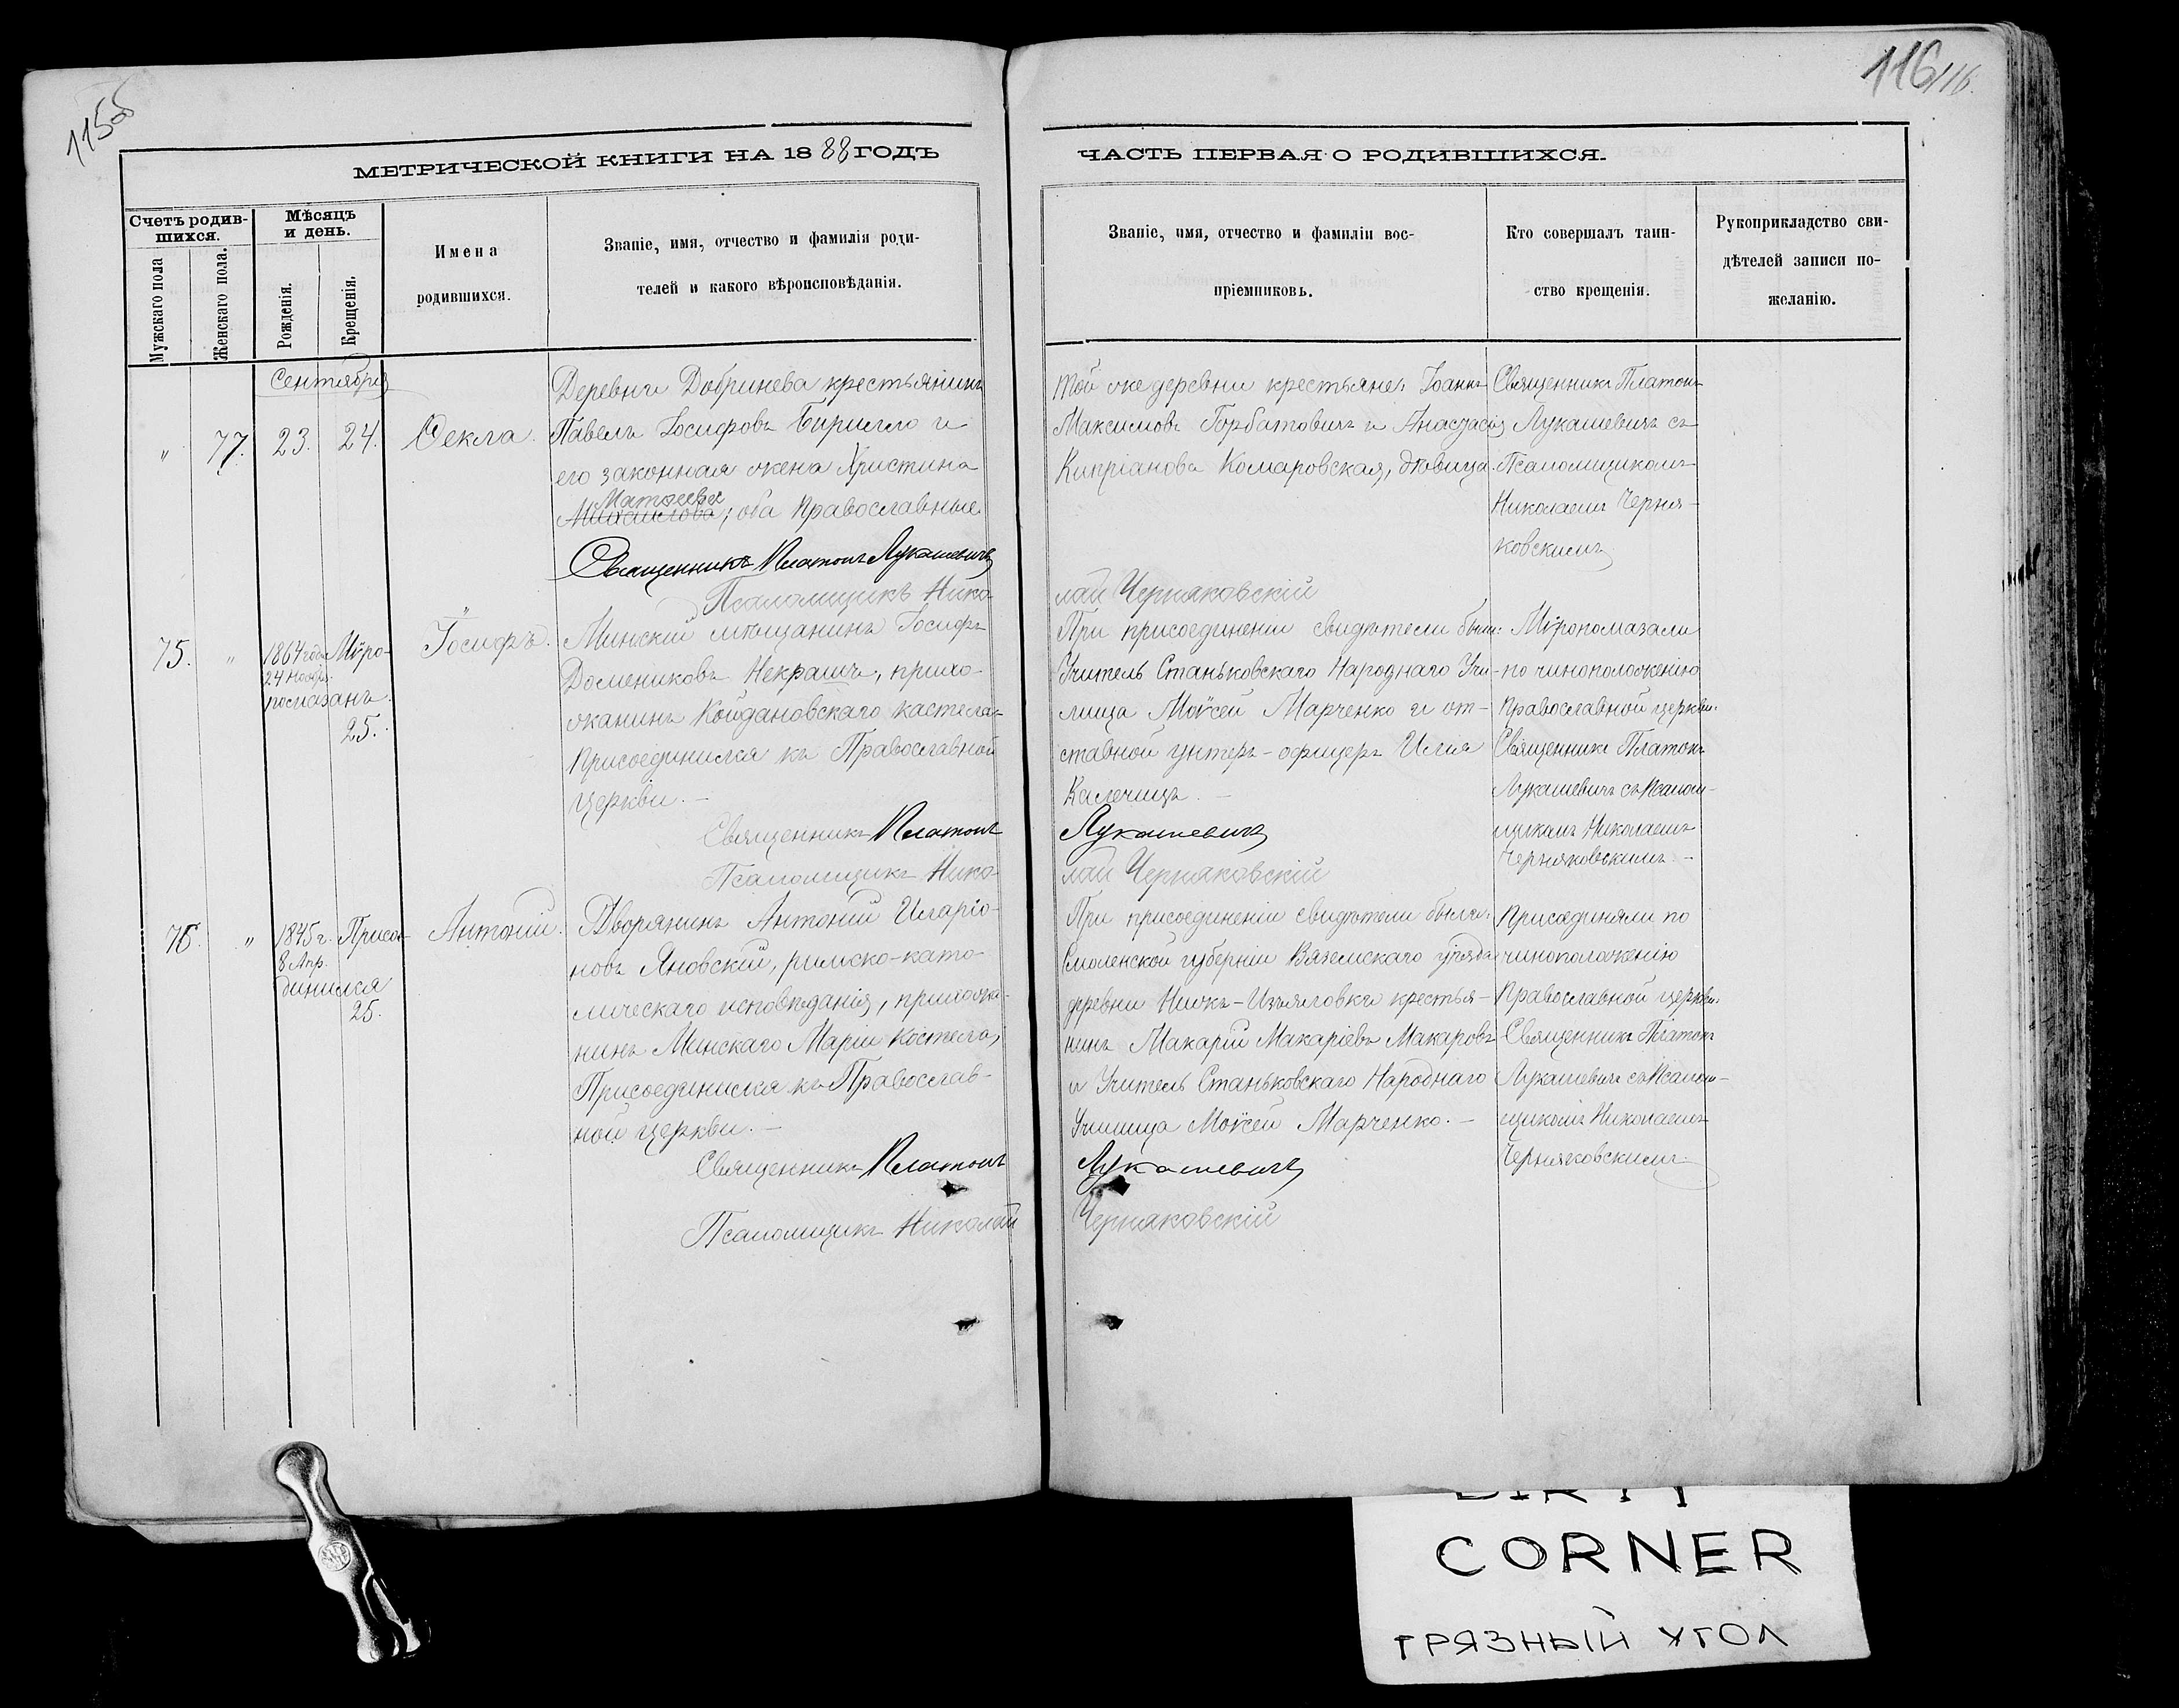 115об
116
116.
МЕТРИЧЕСКОЙ КНИГИ НА 1888 ГОДЪ
ЧАСТЬ ПЕРВАЯ О РОДИВШИХСЯ.
Счетъ родив-
шихся.
Мужскаго пола
Женскаго пола.
Мѣсяцъ
и день.
Рожденія.
Крещенія.
Имена
родившихся.
Званіе, имя, отчество и фамилія роди-
телей и какого вѣроисповѣданія.
Званіе, имя, отчество и фамиліи вос-
пріемниковъ.
Кто совершалъ таин-
ство крещенія.
Рукоприкладство сви-
дѣтелей записи по-
желанію.
Сентября
" 77. 23. 24. Ѳекла.
Деревни Добринева крестьянинъ
Павелъ Іосифовъ Бирилло и
его законная жена Христина
Матѳеева
Михайлова, оба Православные
Священникъ Платонъ Лукашевичъ
Псаломщикъ Нико-
лай Черняковскій
Той же деревни крестьяне: Іоаннъ
Максимовъ Горбатовичъ и Анастасія
Кипріанова Комаровская, дѣвица.
Священникъ Платонъ
Лукашевичъ съ
Псаломщикомъ
Николаемъ Черня-
ковскимъ
75. "
1864 года
24 Ноябр.
Мѵро-
помазанъ
25.
Іосифъ.
Минскій мѣщанинъ Іосифъ
Домениковъ Некрашъ, прихо-
жанинъ Койдановскаго костела
Присоединился къ Православной
Церкви. —
Священникъ Платонъ
Лукашевичъ
Псаломщикъ Нико-
лай Черняковскій
При присоединеніи свидѣтели были:
Учитель Станьковскаго Народнаго Учи-
лища Моѵсей Марченко и от-
ставной унтеръ-офицеръ Илія
Калечицъ. —
Мѵропомазали
по чиноположенію
Православной церкви:
Священникъ Платонъ
Лукашевичъ съ Псалом-
щикомъ Николаемъ
Черняковскимъ. —
76. "
1845 г.
8 Апр.
Присое-
динился
25.
Антоній.
Дворянинъ Антоній Иларіо-
новъ Яновскій, римско-като-
лическаго исповѣданія, прихожа-
нинъ Минскаго Маріи Костела,
Присоединился къ Православ-
ной церкви. —
Священникъ Платонъ
Лукашевичъ
Псаломщикъ Николай
Черняковскій
При присоединеніи свидѣтели были:
Смоленской губерніи Вяземскаго уѣзда
деревни крестья-
нинъ Макарій Макаріевъ Макаровъ
и Учитель Станьковскаго Народнаго
Училища Моѵсей Марченко. —
Присоединяли по
чиноположенію
Православной церкви:
Священникъ Платонъ
Лукашевичъ съ Псалом-
щикомъ Николаемъ
Черняковскимъ.
DIRTY
CORNER
ГРЯЗНЫЙ УГОЛ